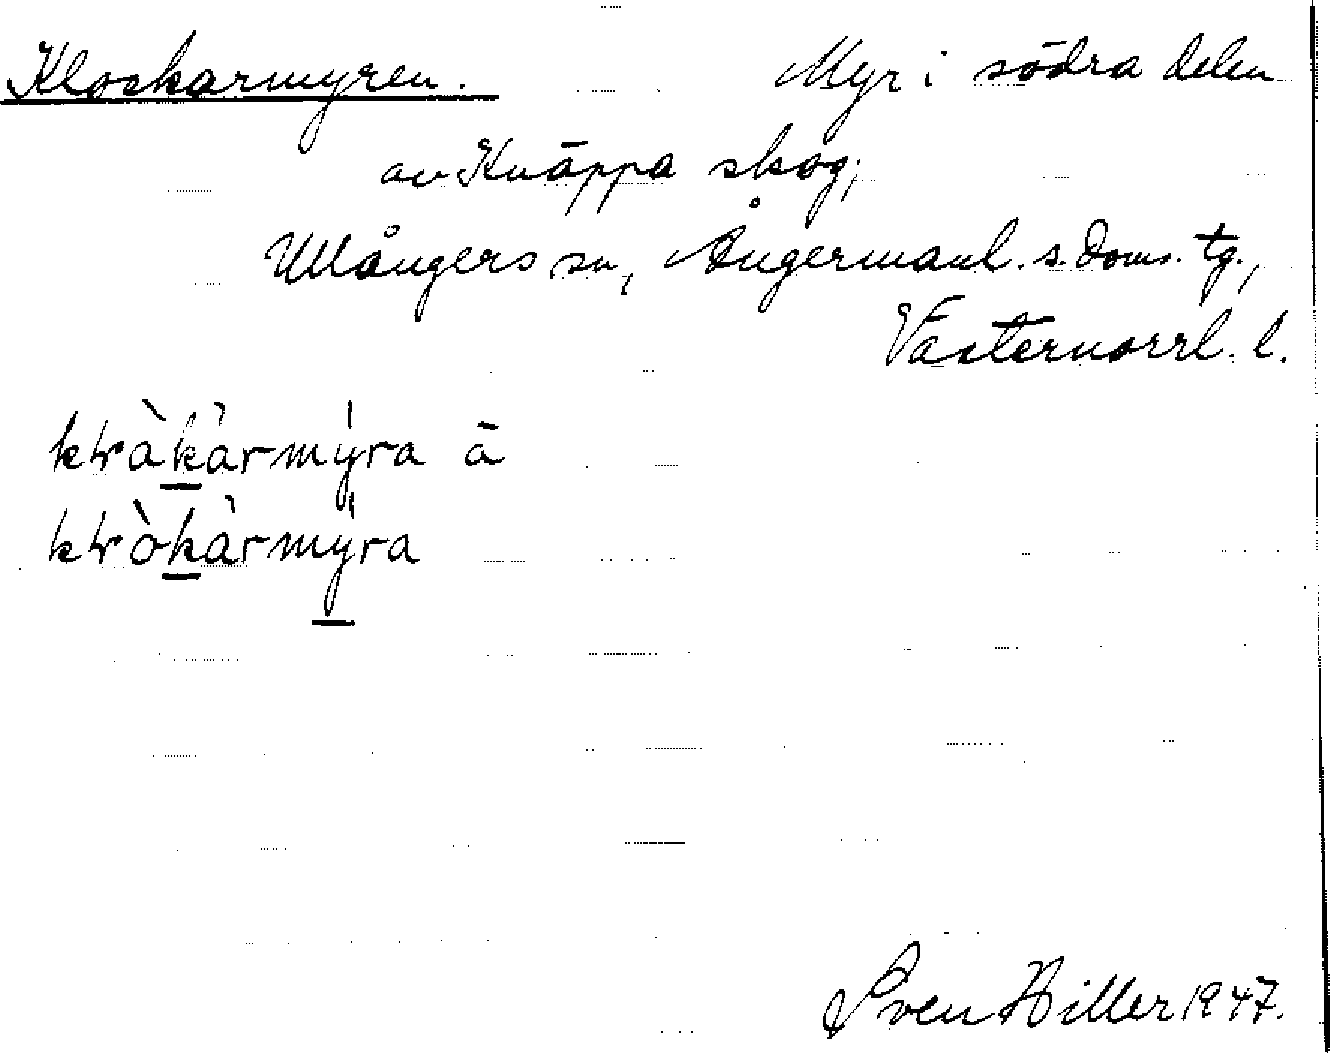 Klockarmyren. Myr i södra delen
av Knäppa skog;
Ullångers sn, Ångermanl. s. doms. tg.,
Västernorrl. l.
kɽὰkàrmýra ä
kɽòkàrmýra
Sven Hiller 1947.